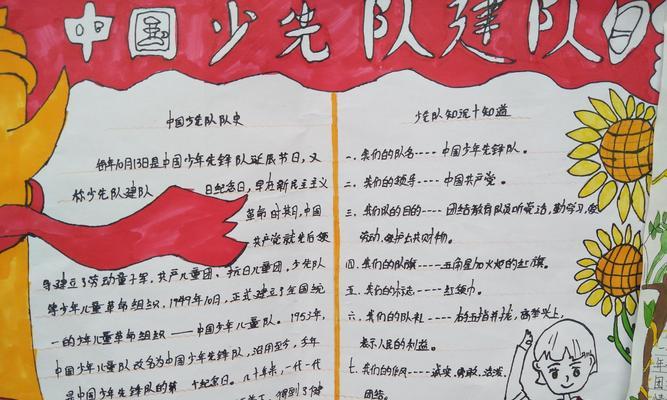 中国少先队建队日
中国少先队队史
每年10月13日是中国少年先锋队诞辰节日，又
称少先队建队 日纪念日，早在新民主主义
革命时其月，中国
共产党就先后领
导建立了劳动童子军，共产儿童团、抗日儿童团，少先队
等少年儿童革命组织，1949年10月，正式建立了全国统
一的少年儿童革命组织——中国少年儿童队。1953年，
中国少年儿童队改名为中国少年先锋队，沿用至今，今年
是中国少年先锋队的第 个纪念日。几十年来，一代一代
得到了健
少先队知识十知道
一、我们的队名----中国少年先锋队。
二、我们的领导----中国共产党。
三、我们队的目的----团结教育队员听党话，勤学习，爱
劳动，维护公共财物。
四、我们的队旗----五角星加火炬的红旗。
五、我们的标志----红领巾。
六、我们的队礼----右手五指并拢，高举头上，
表示人民的利益。
七、我们的作风----诚实、勇敢、活泼、
团结。